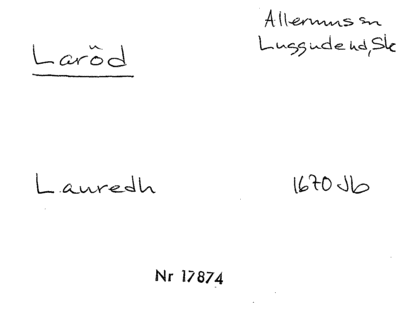 Allerums sn
Luggude hd, Sk
Laröd
Lauredh
1670 Jb
Nr 17874